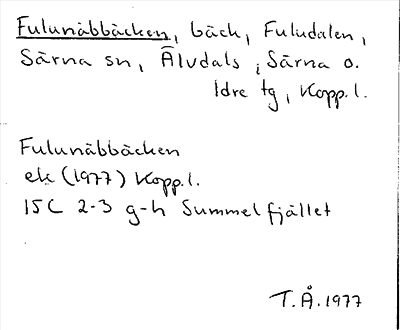 Fulunäbbäcken, bäck, Fuludalen,
Särna sn, Älvdals, Särna o.
Idre tg, Kopp.l.
Fulunäbbäcken
ek (1977) Kopp.l.
15C 2-3 g-h Summelfjället
T.Å.1977